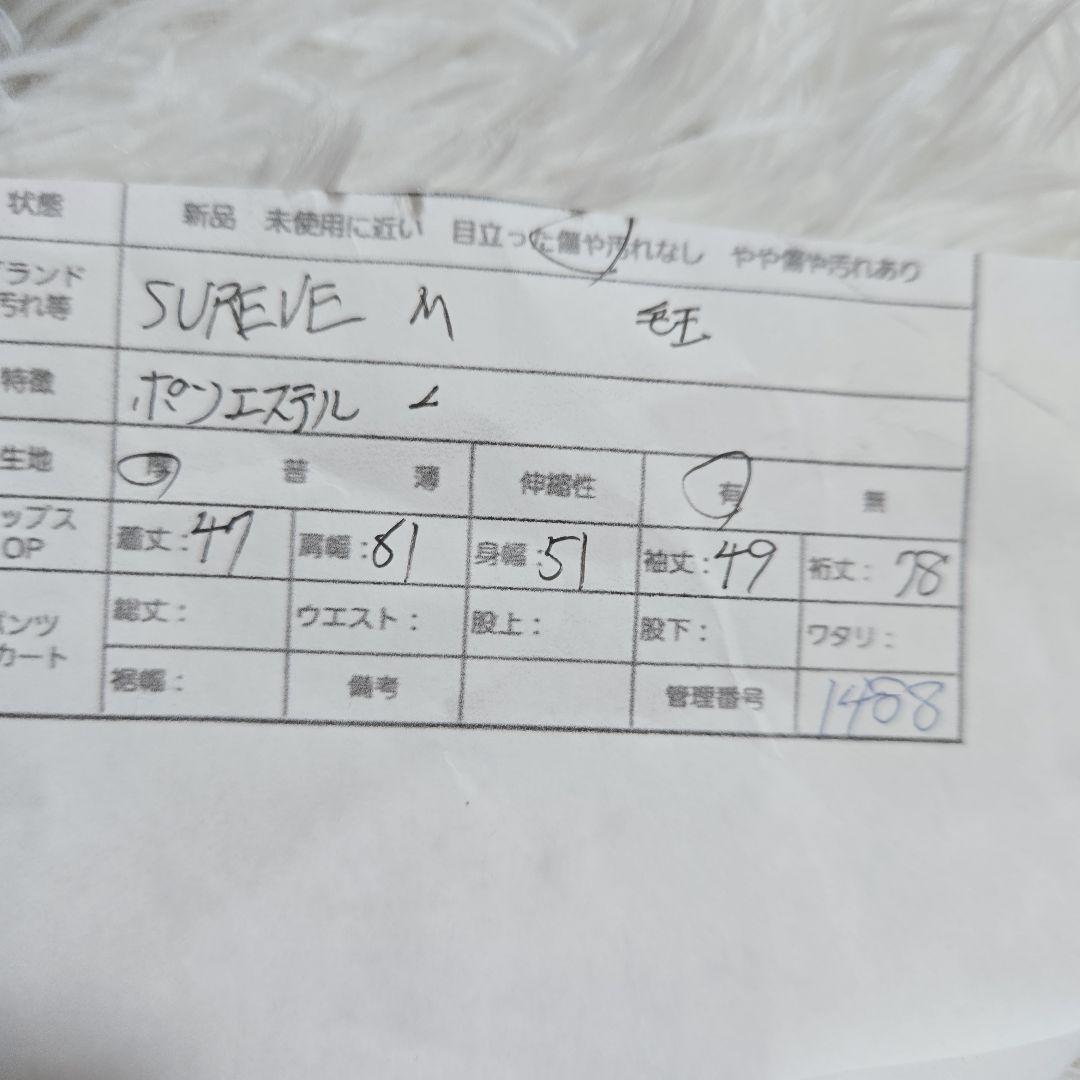 状態 新品 未使用に近い 目立った傷や汚れなし やや傷や汚れあり
ランド
汚れ等 SUREVE M 毛玉
特徴 ポリエステル
生地 厚 普 薄 伸縮性 有 無
ップス
OP 着丈:47 肩幅:61 身幅:51 袖丈:49 裄丈:78
パンツ
カート 総丈: ウエスト: 股上: 股下: ワタリ:
裾幅: 備考 管理番号 1408